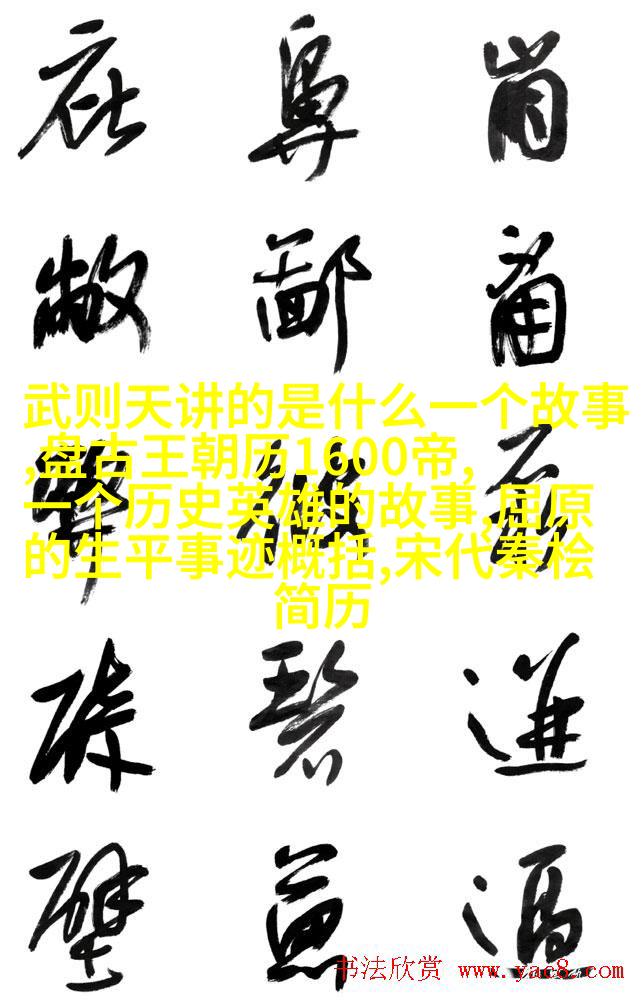 庇 鼻 崗
敝 鄙
武则天讲的是什么一个故事
,盘古王朝历1600帝,
一个历史英雄的故事,屈原
的生平事迹概括,宋代秦桧
简历
碧 迸
壁 逼
书法欣赏 www.yac8.com